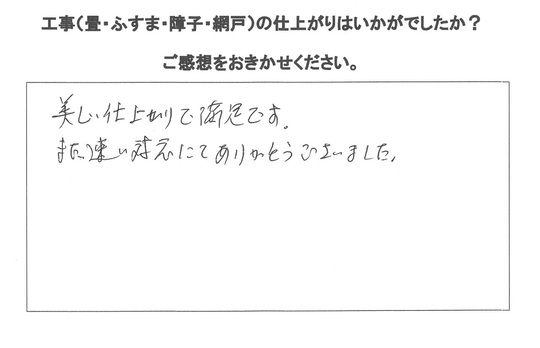 工事(畳・ふすま・障子・網戸)の仕上がりはいかがでしたか?
ご感想をおきかせください。
美しい仕上がりで満足です。
また、速い対応にてありがとうございました。